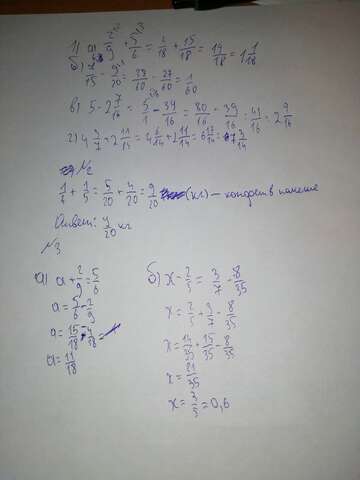 1) а) 2/9 + 5/6 = 4/18 + 15/18 = 19/18 = 1 1/18
б) 7/15 - 9/20 = 28/60 - 27/60 = 1/60
в) 5 - 2 7/16 = 5/1 - 39/16 = 80/16 - 39/16 = 41/16 = 2 9/16
г) 4 3/7 + 2 11/14 = 4 6/14 + 2 11/14 = 6 17/14 = 7 3/14
№2
1/4 + 1/5 = 5/20 + 4/20 = 9/20 (кг) — конфет в
Ответ: 9/20 кг
№3
а) а + 2/9 = 5/6
а = 5/6 - 2/9
а = 15/18 - 4/18 =
а = 11/18
б) x - 2/5 = 3/7 - 8/35
x = 2/5 + 3/7 - 8/35
x = 14/35 + 15/35 - 8/35
x = 21/35
x = 3/5 = 0,6